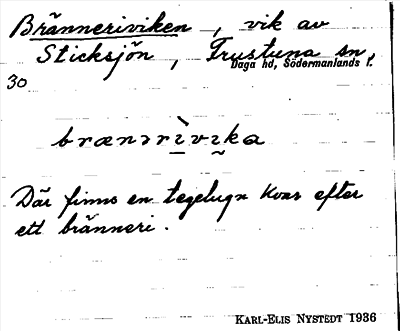 Bränneriviken, vik av
Sticksjön, Frustuna sn,
Daga hd, Södermanlands l.
30
brænərìvıka
Där finns en tegelugn kvar efter
ett bränneri.
KARL-ELIS NYSTEDT 1936